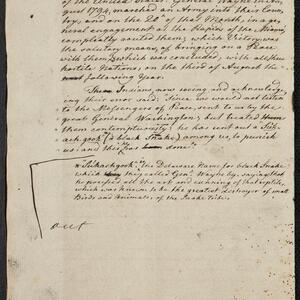 of the United States. General Wayne in Au-
gust 1794, marched an Army into their Coun-
try, and on the 20th of that Month, in a ge-
neral engagement at the Rapids of the Miami,
compleatly routed them; which Victory was
the salutary means, of bringing on a Peace
with them, which was concluded, with all these
hostile Nations, on the third of August the
following Year.
The Indians now seeing and acknowledg-
ing their error said: Since we would not listen
to the Messengers of Peace, sent to us by the
great General Washington; but treated them
them contemptuously; he has sent out a Suk-
ach gook (a black Snake) among us, to punish
us: and this has done.
* Sukachgook. The Delaware Name for black Snake
which they called Genl. Wayne by, saying that
he possessed all the art and cunning of that reptile,
which was known to be the greatest destroyer of small
Birds and Animals, of the Snake Tribe.
out